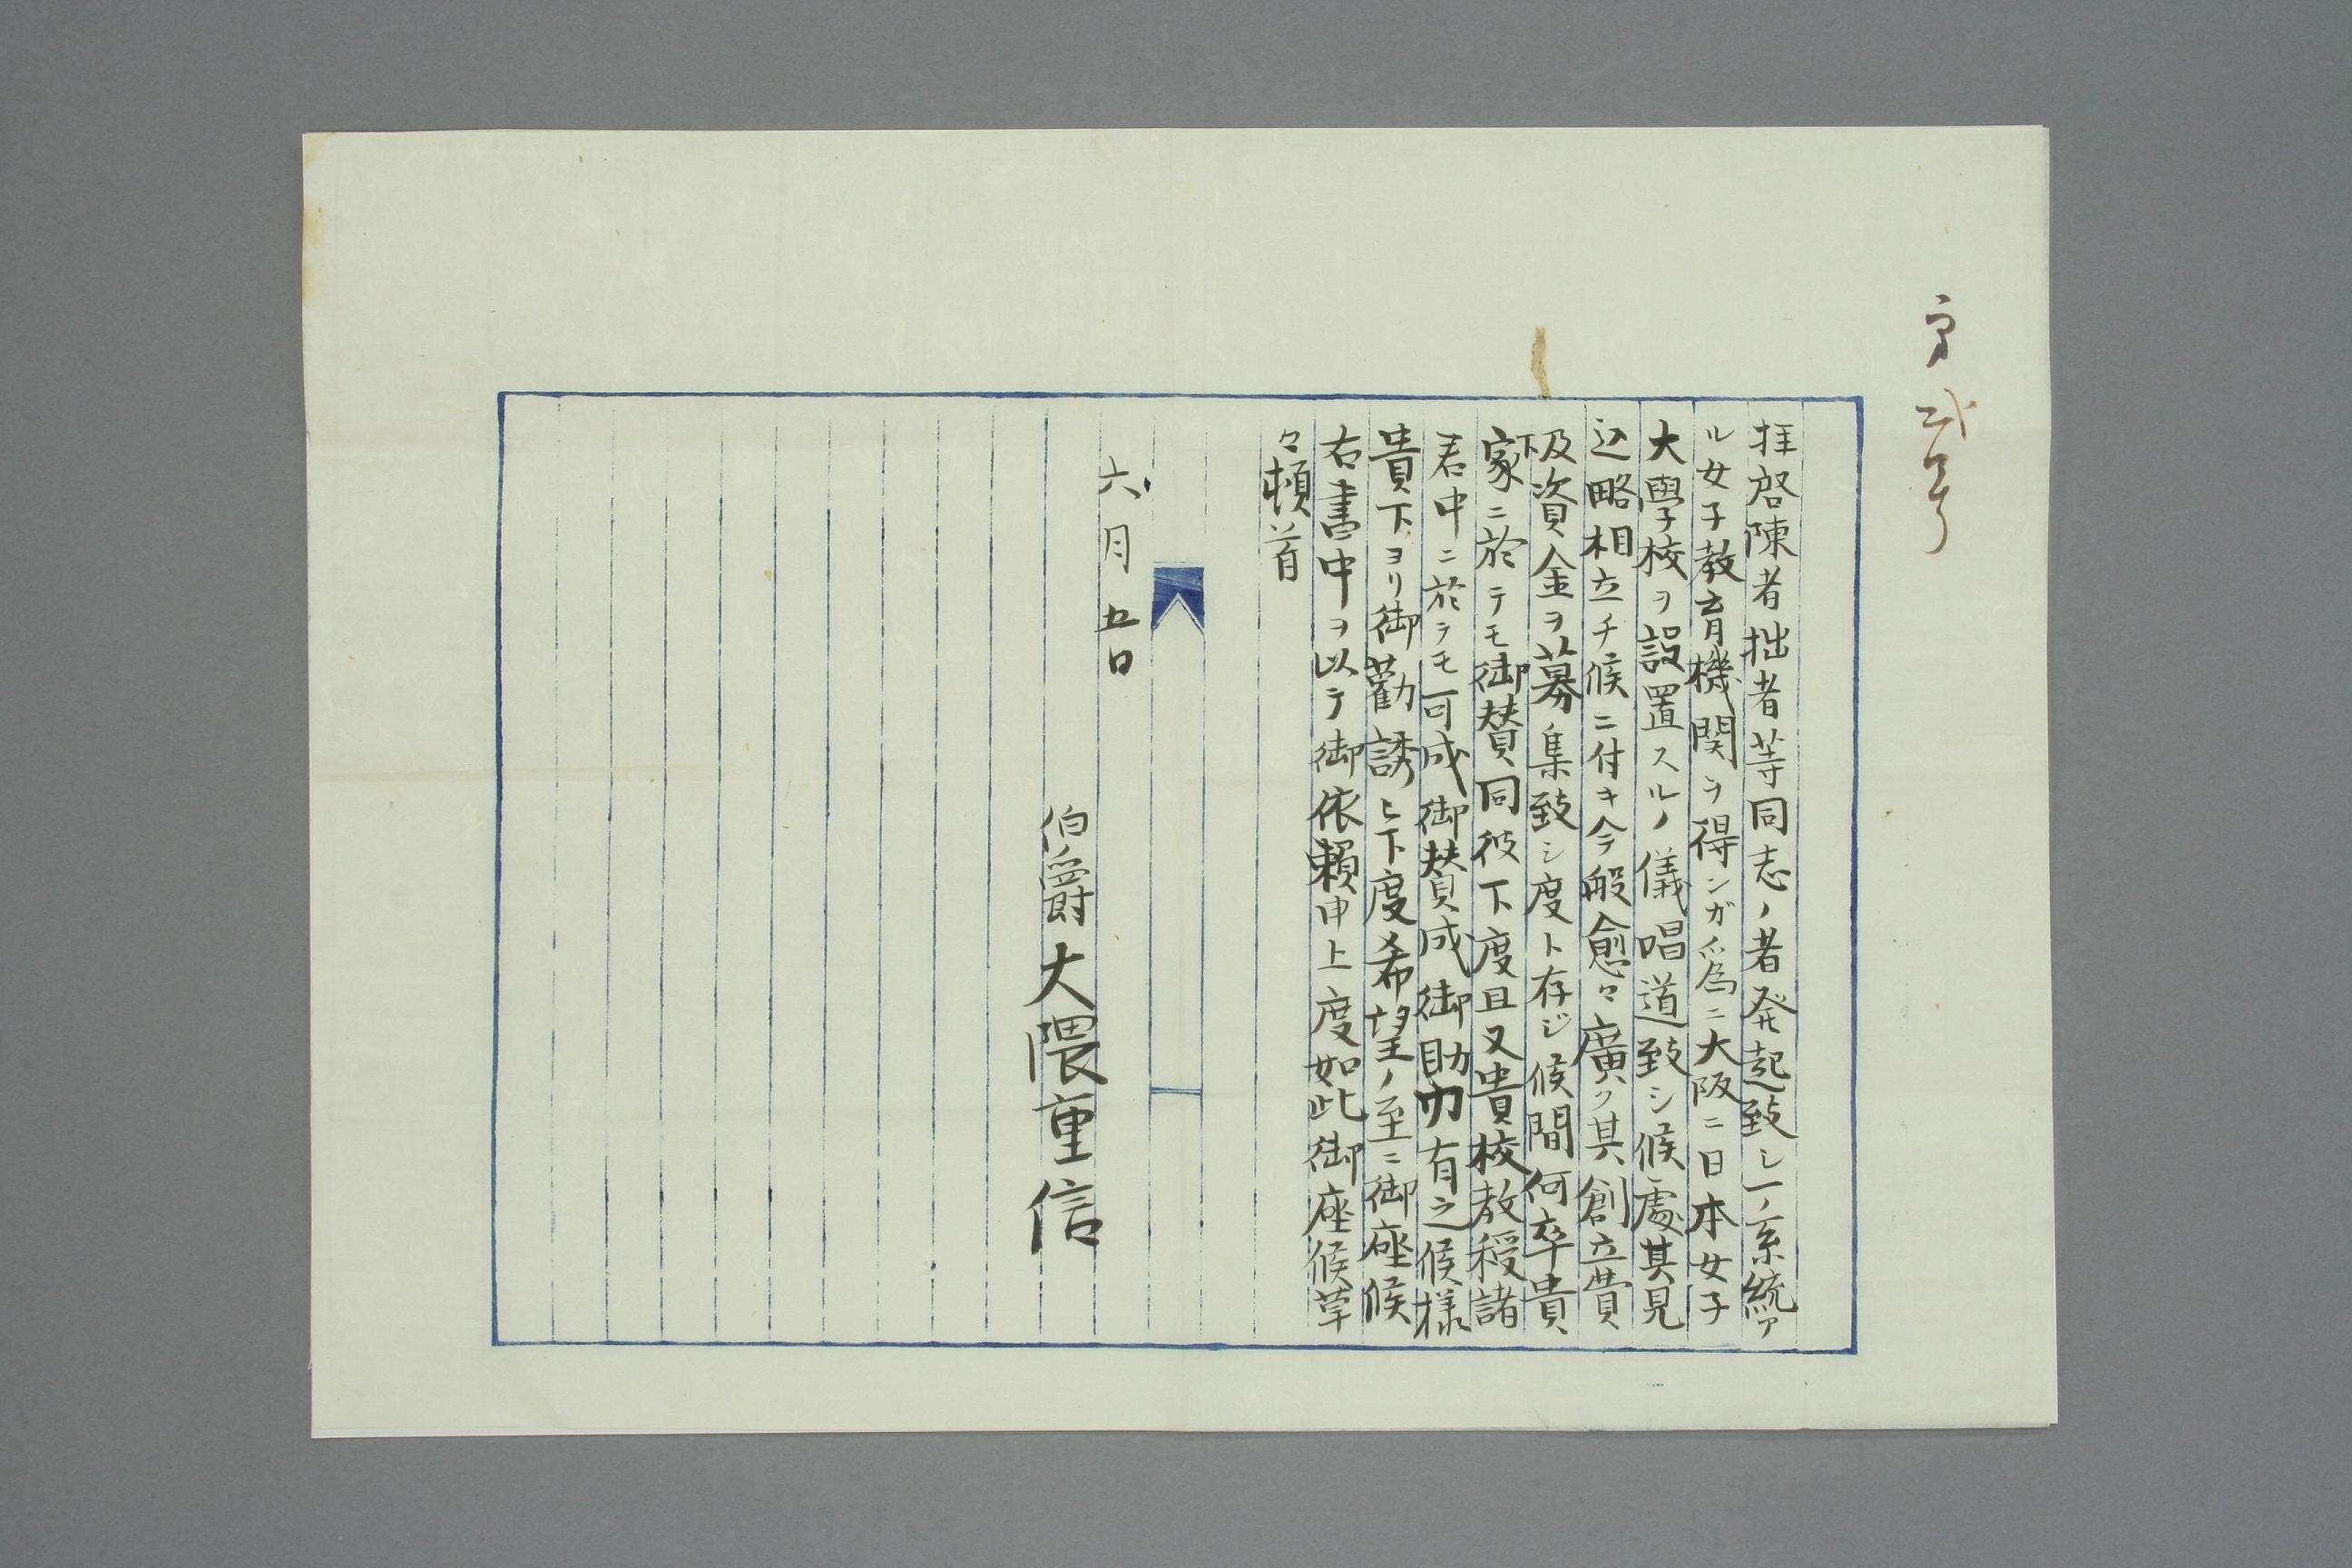 第弐号
拝啓陳者拙者等同志ノ者発起致シ一ノ系統ア
ル女子教育機関ヲ得ンガ爲ニ大阪ニ日本女子
大學校ヲ設置スルノ儀唱道致シ候處其見
込略相立チ候ニ付キ今般愈々廣ク其創立費
及資金ヲ募集致シ度ト存ジ候間何卒貴下
家ニ於テモ御賛同被下度且又貴校教授諸
君中ニ於テモ可成御賛成御助力有之候様
貴下ヨリ御勸誘被下度希望ノ至ニ御座候
右書中ヲ以テ御依頼申上度如此御座候草
々頓首
六月五日
伯爵大隈重信